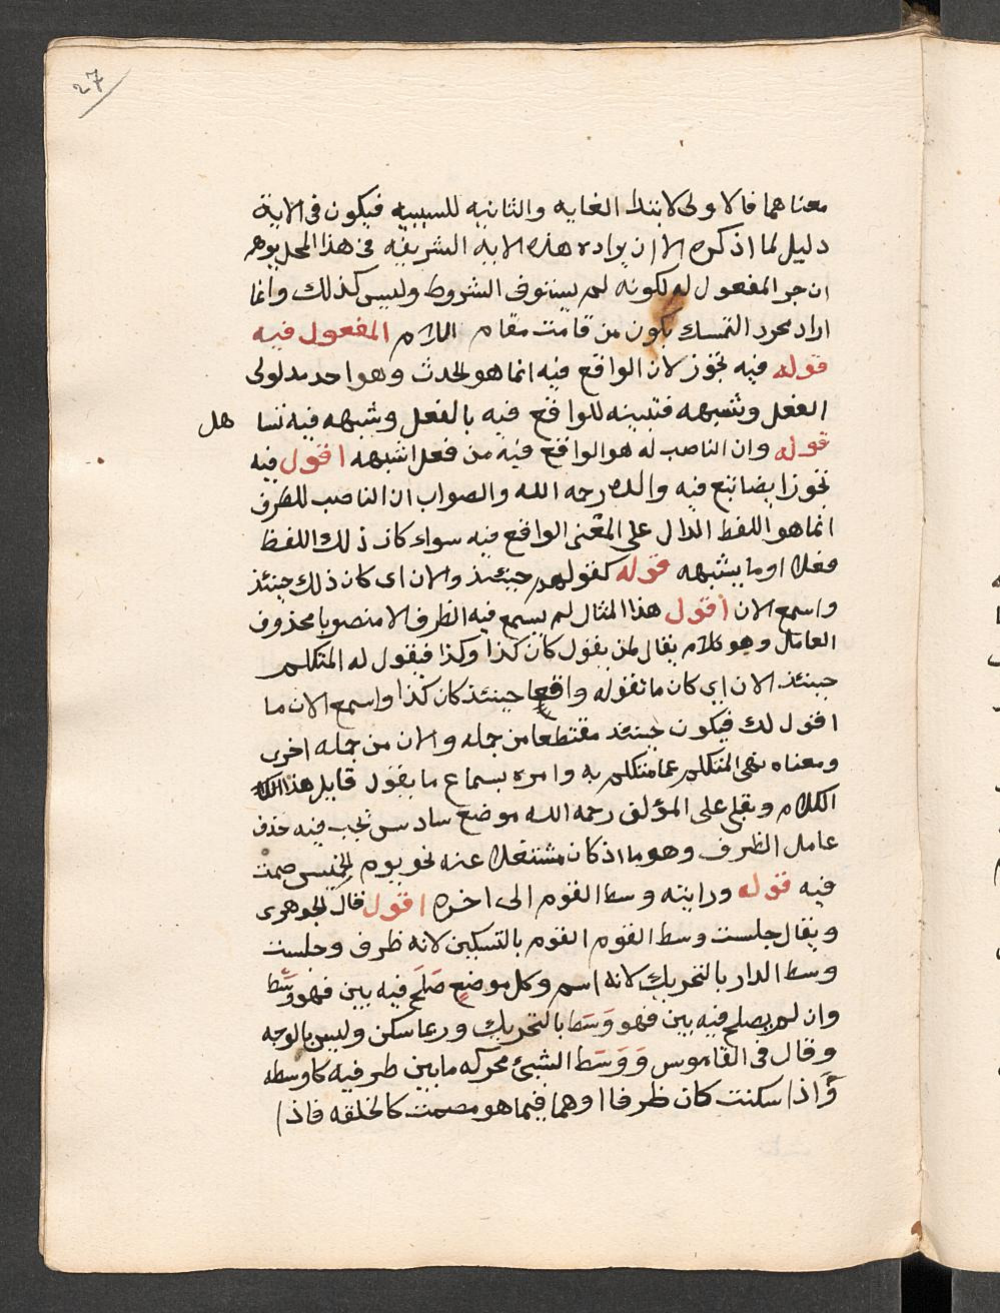 27
معناهما فالاولى لابتدا الغايه والثانيه للسببيه فيكون فى الاية
دليل لما اذكره الا ان يراده هذه الايه الشريفه فى هذا المحل يوهم
ان جر المفعول له لكونه لم يستوفى الشروط وليس كذلك وانما
اراد مجرد التمسك بكون من قامت مقام اللام المفعول فيه
قوله فيه تجوز لان الواقع فيه انما هو الحدث وهو احد مدلولى
الفعل وشبهه فتبينه للواقع فيه بالفعل وشبهه فيه تسا هل
قوله وان الناصب له هو الواقع فيه من فعل اشبهه اقول فيه
تجوز ايضا تبع فيه والده رحمه الله والصواب ان الناصب للظرف
انما هو اللفظ الدال على المعنى الواقع فيه سواء كان ذلك اللفظ
فعلا او ما يشبهه قوله كقولهم حينئذ والان اى كان ذلك حينئذ
واسمع الان اقول هذا المثال لم يسمع فيه الظرف الا منصوبا محذوف
العامل وهو كلام يقال لمن يقول كان كذا وكذا فيقول له المتكلم
حينئذ الان اي كان ما تقوله واقعا حينئذ كان كذا واسمع الان ما
اقول لك فيكون حينئذ مقتطعا من جمله والان من جمله اخرى
ومعناه نهى المتكلم عما متكلم به وامره بسماع ما يقول قايل هذا
الكلام وبقى على المؤلف رحمه الله موضع سادس تجب فيه حذف
عامل الظرف وهو ما اذ كان مشتغلا عنه نحو يوم الخميس صمت
فيه قوله ورايته وسط القوم الى اخره اقول قال الجوهرى
ويقال جلست وسط القوم القوم بالتسكين لانه ظرف وجلست
وسط الدار بالتحريك لانه اسم وكل موضع صَلَح فيه بين فهو وسَط
وان لم يصلح فيه بين فهو وَسَط بالتحريك وربما سكن وليس بالوجه
وقال فى القاموس وَوَسَط الشئ محركه ما بين طرفيه كاوسطه
وَاذا سكنت كان ظرفا اوهما فيما هو مصمت كالحلقه فاذا